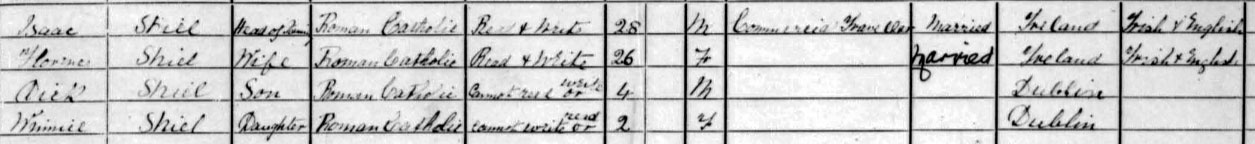 Isaac Shiel Head of Family Roman Catholic Read & Write 28 M Commercial Traveller Married Ireland Irish & English
Florence Shiel Wife Roman Catholic Read & Write 26 F Married Ireland Irish & English
Dick Shiel Son Roman Catholic Cannot read or write 4 M Dublin
Winnie Shiel Daughter Roman Catholic Cannot write or read 2 F Dublin